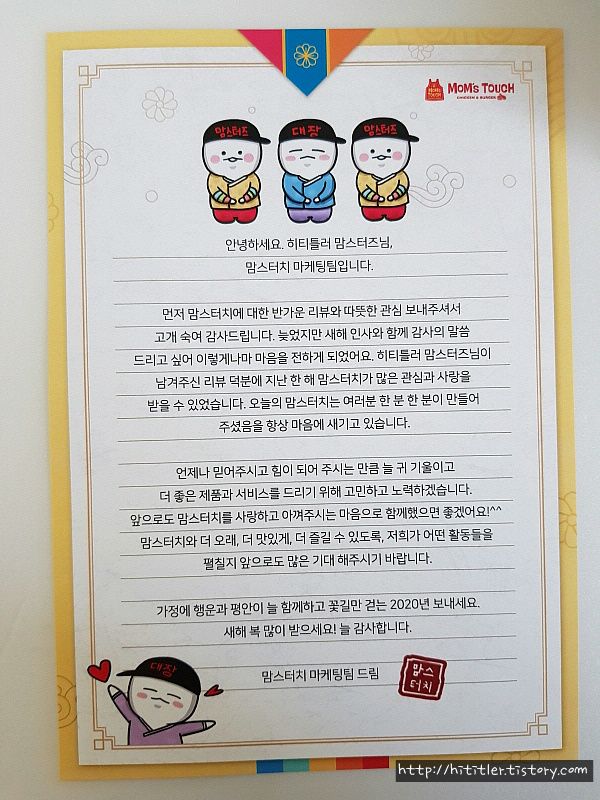 MOM'S TOUCH
MOM'S TOUCH
CHICKEN & BURGER
맘스터즈
대장
맘스터즈
안녕하세요. 히티틀러 맘스터즈님,
맘스터치 마케팅팀입니다.
먼저 맘스터치에 대한 반가운 리뷰와 따뜻한 관심 보내주셔서
고개 숙여 감사드립니다. 늦었지만 새해 인사와 함께 감사의 말씀
드리고 싶어 이렇게나마 마음을 전하게 되었어요. 히티틀러 맘스터즈님이
남겨주신 리뷰 덕분에 지난 한 해 맘스터치가 많은 관심과 사랑을
받을 수 있었습니다. 오늘의 맘스터치는 여러분 한 분 한 분이 만들어
주셨음을 항상 마음에 새기고 있습니다.
언제나 믿어주시고 힘이 되어 주시는 만큼 늘 귀 기울이고
더 좋은 제품과 서비스를 드리기 위해 고민하고 노력하겠습니다.
앞으로도 맘스터치를 사랑하고 아껴주시는 마음으로 함께했으면 좋겠어요!^^
맘스터치와 더 오래, 더 맛있게, 더 즐길 수 있도록, 저희가 어떤 활동들을
펼칠지 앞으로도 많은 기대 해주시기 바랍니다.
가정에 행운과 평안이 늘 함께하고 꽃길만 걷는 2020년 보내세요.
새해 복 많이 받으세요! 늘 감사합니다.
맘스터치 마케팅팀 드림
맘스
터치
대장
http://hititler.tistory.com